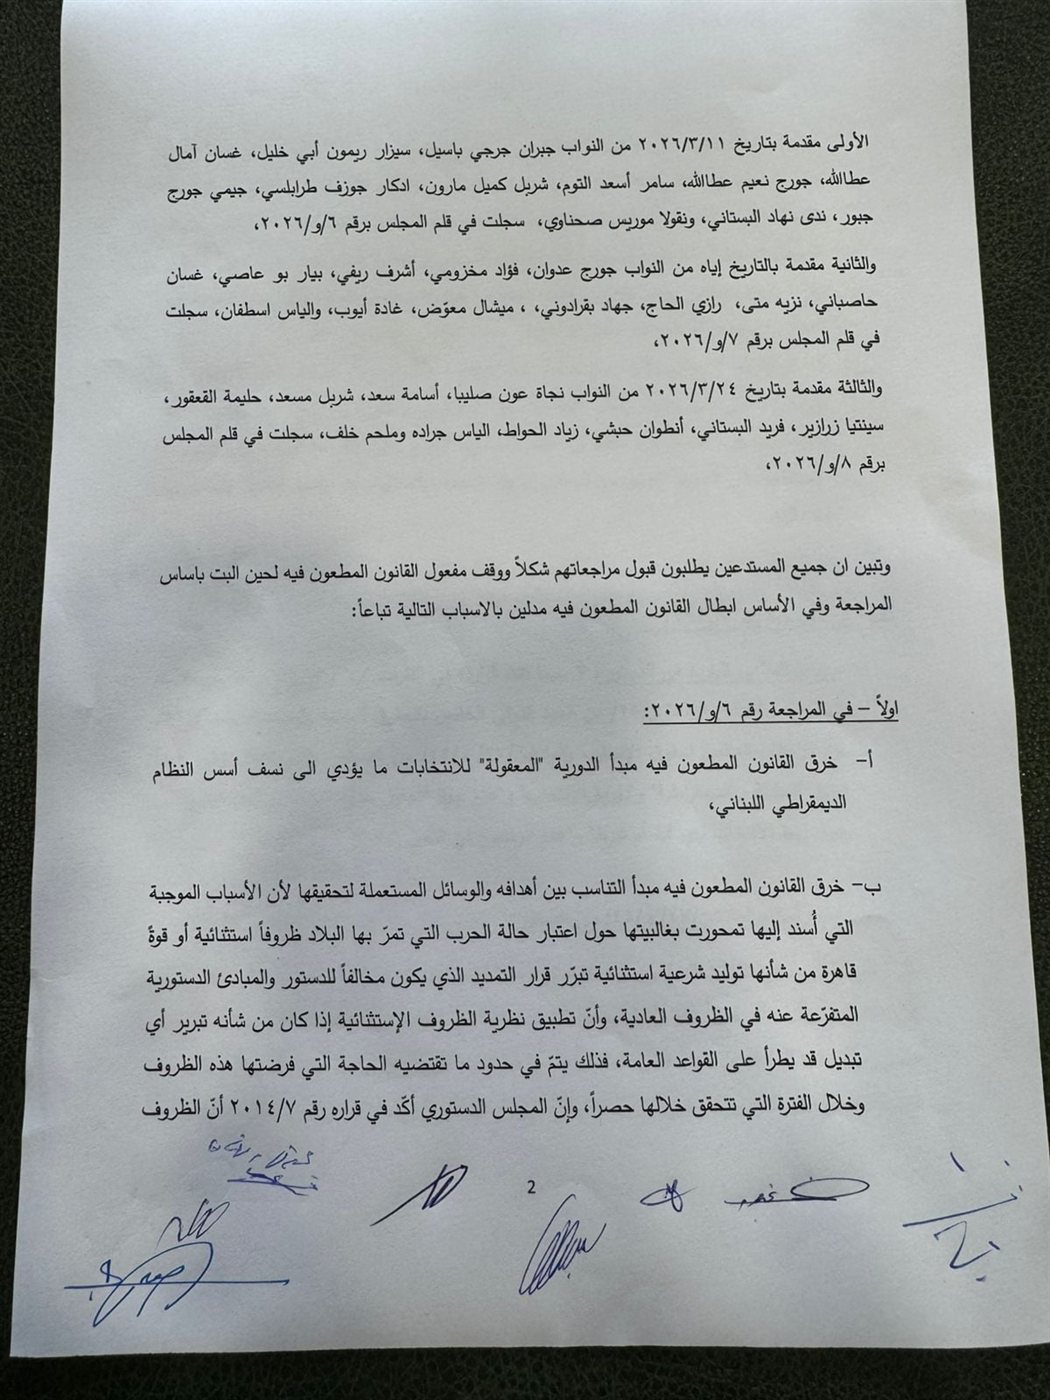 الأولى مقدمة بتاريخ ٢٠٢٦/٣/١١ من النواب جبران جرجي باسيل، سيزار ريمون أبي خليل، غسان آمال
عطاالله، جورج نعيم عطاالله، سامر أسعد التوم، شربل كميل مارون، ادكار جوزف طرابلسي، جيمي جورج
جبور، ندى نهاد البستاني، ونقولا موريس صحناوي، سجلت في قلم المجلس برقم ٦/و/٢٠٢٦،
والثانية مقدمة بالتاريخ إياه من النواب جورج عدوان، فؤاد مخزومي، أشرف ريفي، بيار بو عاصي، غسان
حاصباني، نزيه متى، رازي الحاج، جهاد بقرادوني، ، ميشال معوّض، غادة أيوب، والياس اسطفان، سجلت
في قلم المجلس برقم ٧/و/٢٠٢٦،
والثالثة مقدمة بتاريخ ٢٠٢٦/٣/٢٤ من النواب نجاة عون صليبا، أسامة سعد، شربل مسعد، حليمة القعقور،
سينتيا زرازير، فريد البستاني، أنطوان حبشي، زياد الحواط، الياس جراده وملحم خلف، سجلت في قلم المجلس
برقم ٨/و/٢٠٢٦،
وتبين ان جميع المستدعين يطلبون قبول مراجعاتهم شكلاً ووقف مفعول القانون المطعون فيه لحين البت باساس
المراجعة وفي الأساس ابطال القانون المطعون فيه مدلين بالاسباب التالية تباعاً:
اولاً – في المراجعة رقم ٦/و/٢٠٢٦:
أ– خرق القانون المطعون فيه مبدأ الدورية "المعقولة" للانتخابات ما يؤدي الى نسف أسس النظام
الديمقراطي اللبناني،
ب– خرق القانون المطعون فيه مبدأ التناسب بين أهدافه والوسائل المستعملة لتحقيقها لأن الأسباب الموجبة
التي أُسند إليها تمحورت بغالبيتها حول اعتبار حالة الحرب التي تمرّ بها البلاد ظروفاً استثنائية أو قوةً
قاهرة من شأنها توليد شرعية استثنائية تبرّر قرار التمديد الذي يكون مخالفاً للدستور والمبادئ الدستورية
المتفرّعة عنه في الظروف العادية، وأنّ تطبيق نظرية الظروف الإستثنائية إذا كان من شأنه تبرير أي
تبديل قد يطرأ على القواعد العامة، فذلك يتمّ في حدود ما تقتضيه الحاجة التي فرضتها هذه الظروف
وخلال الفترة التي تتحقق خلالها حصراً، وإنّ المجلس الدستوري أكّد في قراره رقم ٢٠١٤/٧ أنّ الظروف
2